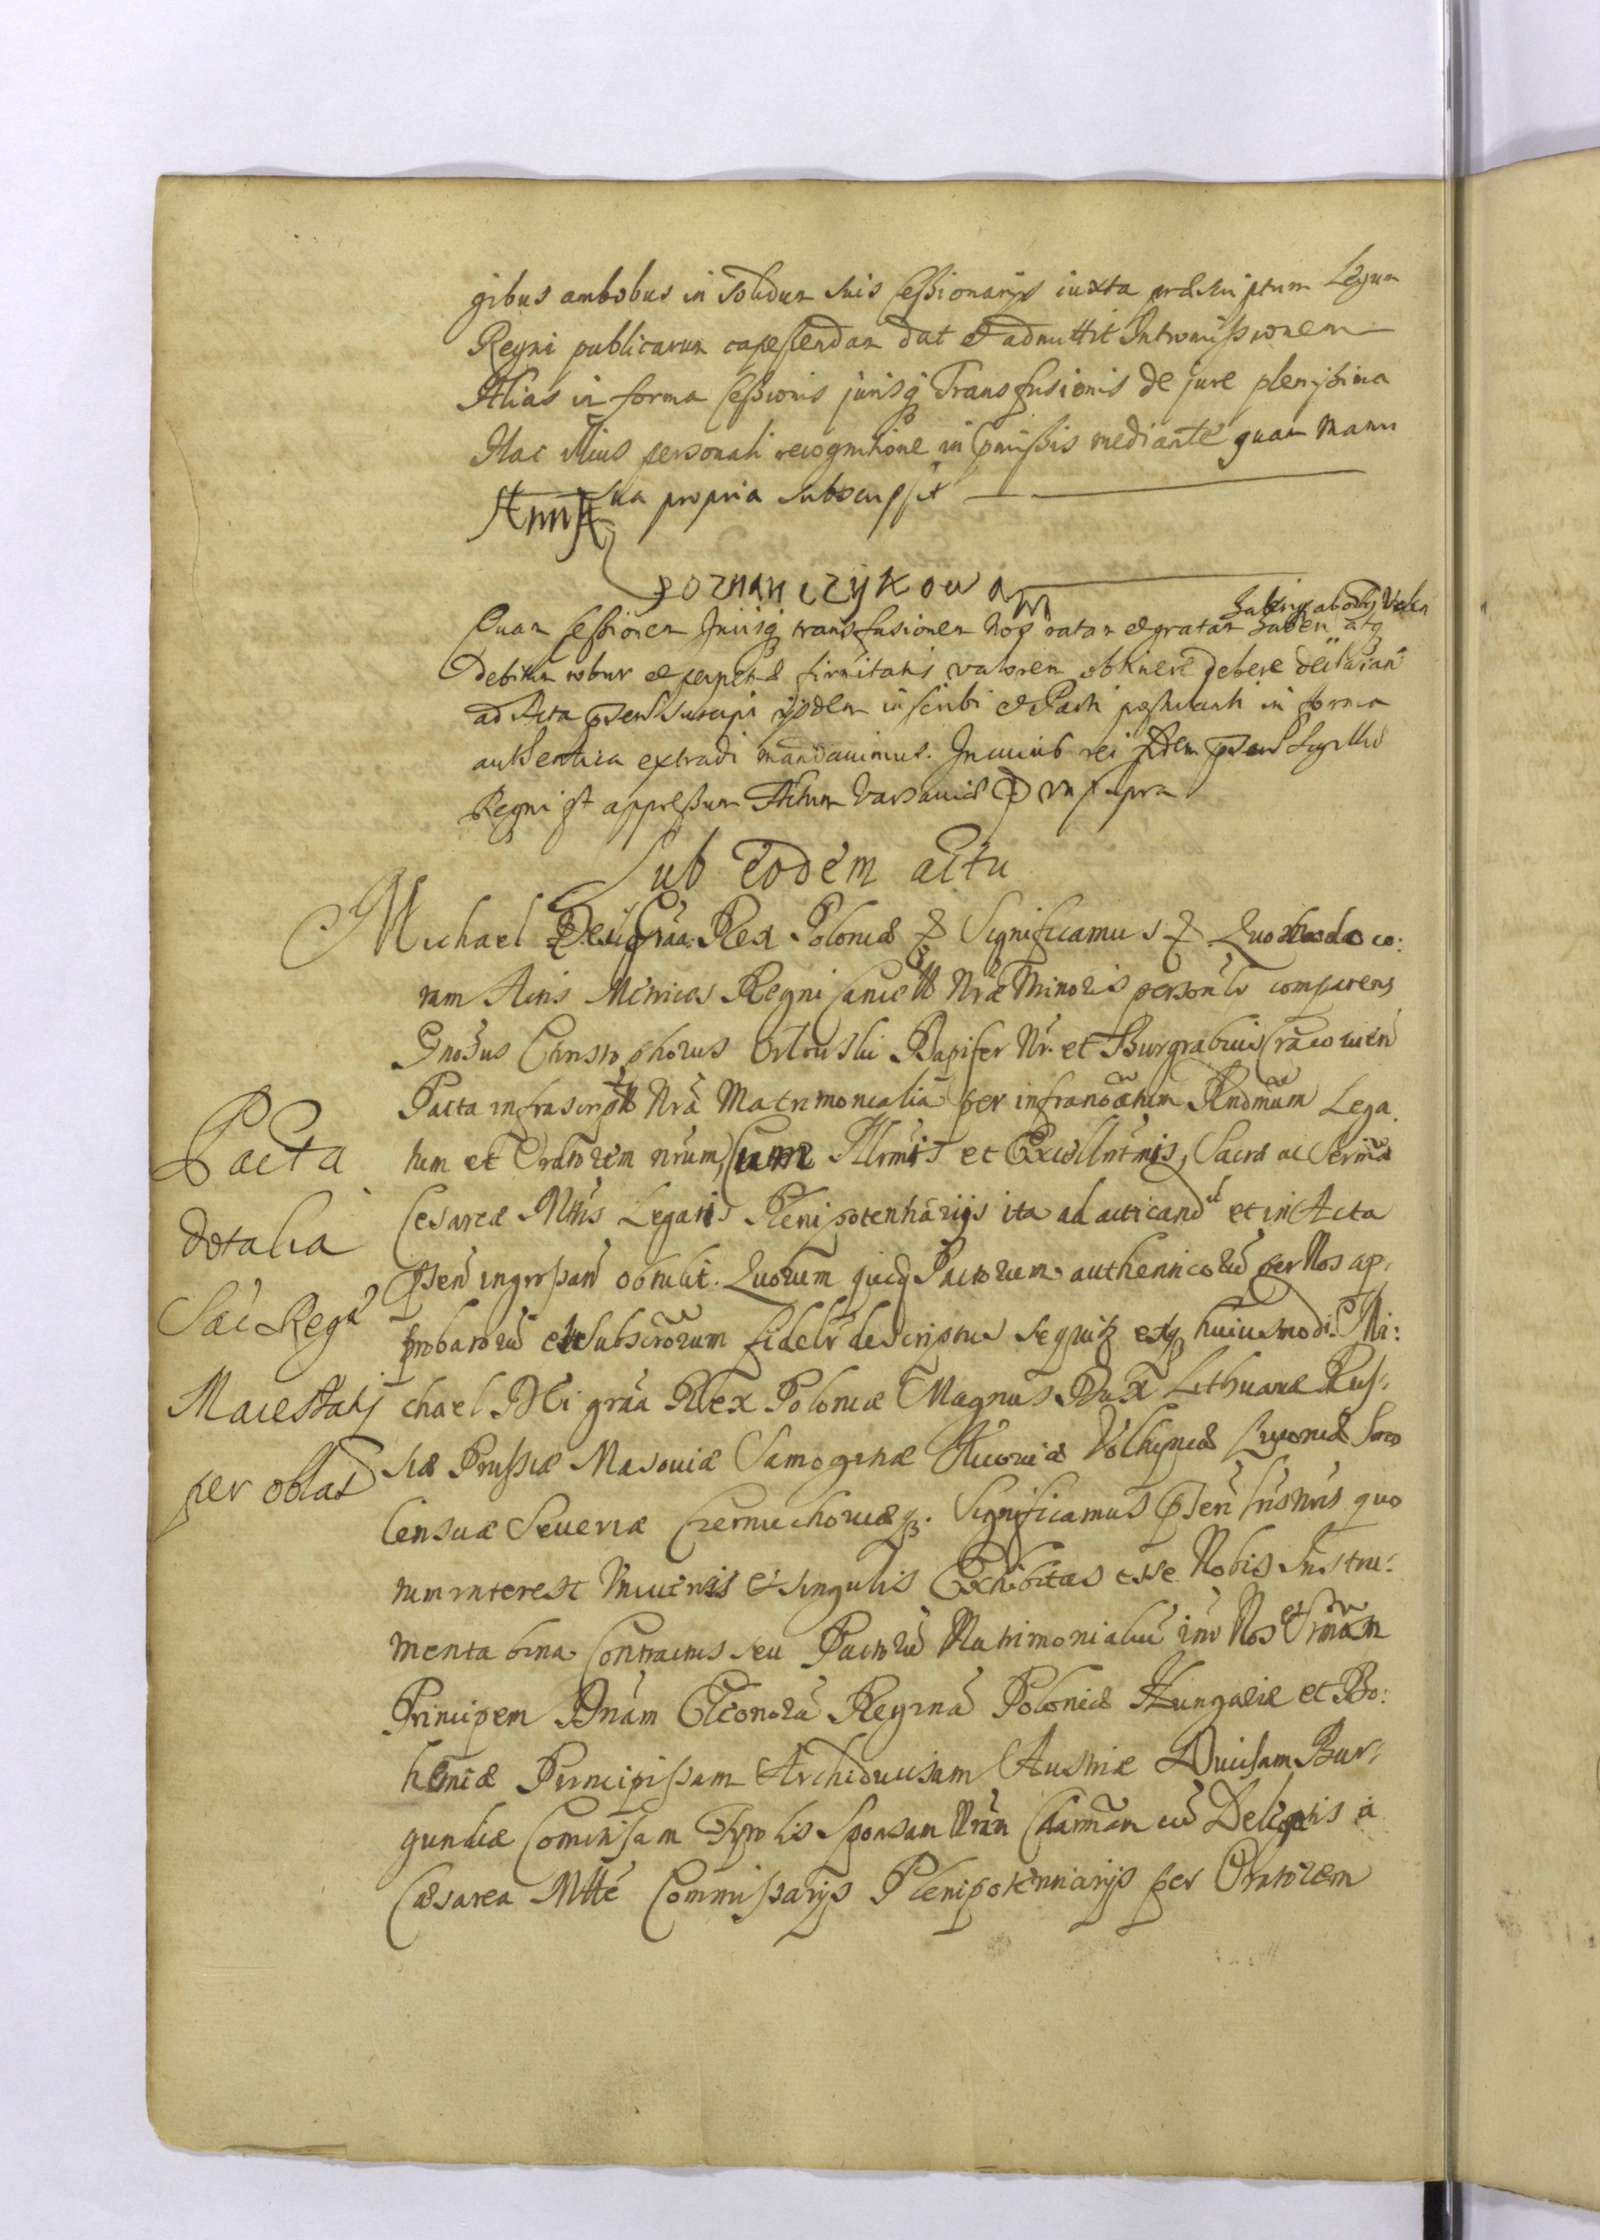 gibus ambobus in solidum suis Cessionarijs iuxta praescriptum Legum
Regni publicarum capessendam dat et admittit Intromissionem
Alias in forma Cessionis jurisq Transfusionis de jure plenissima
Hac illius personali recognitione in pmissis mediante quam manu
sua propria subscripsit
Anna
Poznanczykowa
Quam Cessionem Jurisq transfusionem Nos ratam et gratam haben atq
debitum robur et perpetuae firmitatis valorem obtinere debere declaran
ad Acta psen suscipi ijsdem inscribi et Parti postulanti in forma
authentica extradi mandavimus. In cuius rei fidem psen Sigillu
Regni est appressum Actum Varsaviae ut supra
Sub eodem actu
Michael Dei Gra Rex Poloniae Significamus Quo co:
ram Actis Metrices Regni Cancell Nrae Minoris personlr comparens
Gnosus Christophorus Dapifer Nr. et Burgrabius Cracovien
Pacta infrascript Nra Matrimonialia per Rndmum Lega
tum et Oratorem nrum, cum Illrmis et Excellntmis, Sacrae ac Sermae
Cesareae Mttis Legatis Plenipotentiarijs ita ad acticand et in Acta
psen ingrossan obtulit. Quorum quidq Pactorum authenticoru per Nos ap:
probatoru et subscrorum fidelr descriptus sequitur estq huiusmodi. Mi:
chael Dei graa Rex Poloniae Magnus Dux Lithuaniae Rus:
siae Prussiae Masoviae Samogitiae Kijoviae Volhyniae Livoniae Smo
lensciae Severiae Czernichoviaeq. Significamus psen lris nris quo
rum interest Universis et singulis Exhibitas esse Nobis Instru:
menta bina Contractus seu Pactoru Matrimonialiu intr Nos et Srmam
Principem Dnam Eleonora Regina Poloniae Hungariae et Bo:
hemiae Principissam Archiducissam Austriae Ducissam Bur:
gundiae Comitissam Tyrolis Sponsam Nram Charmam cu Delegatis a
Caesarea Mtte Commissarijs Plenipotentiarijs per Oratorem
Pacta
dotalia
Sac Rega
Maiestatis
per oblat